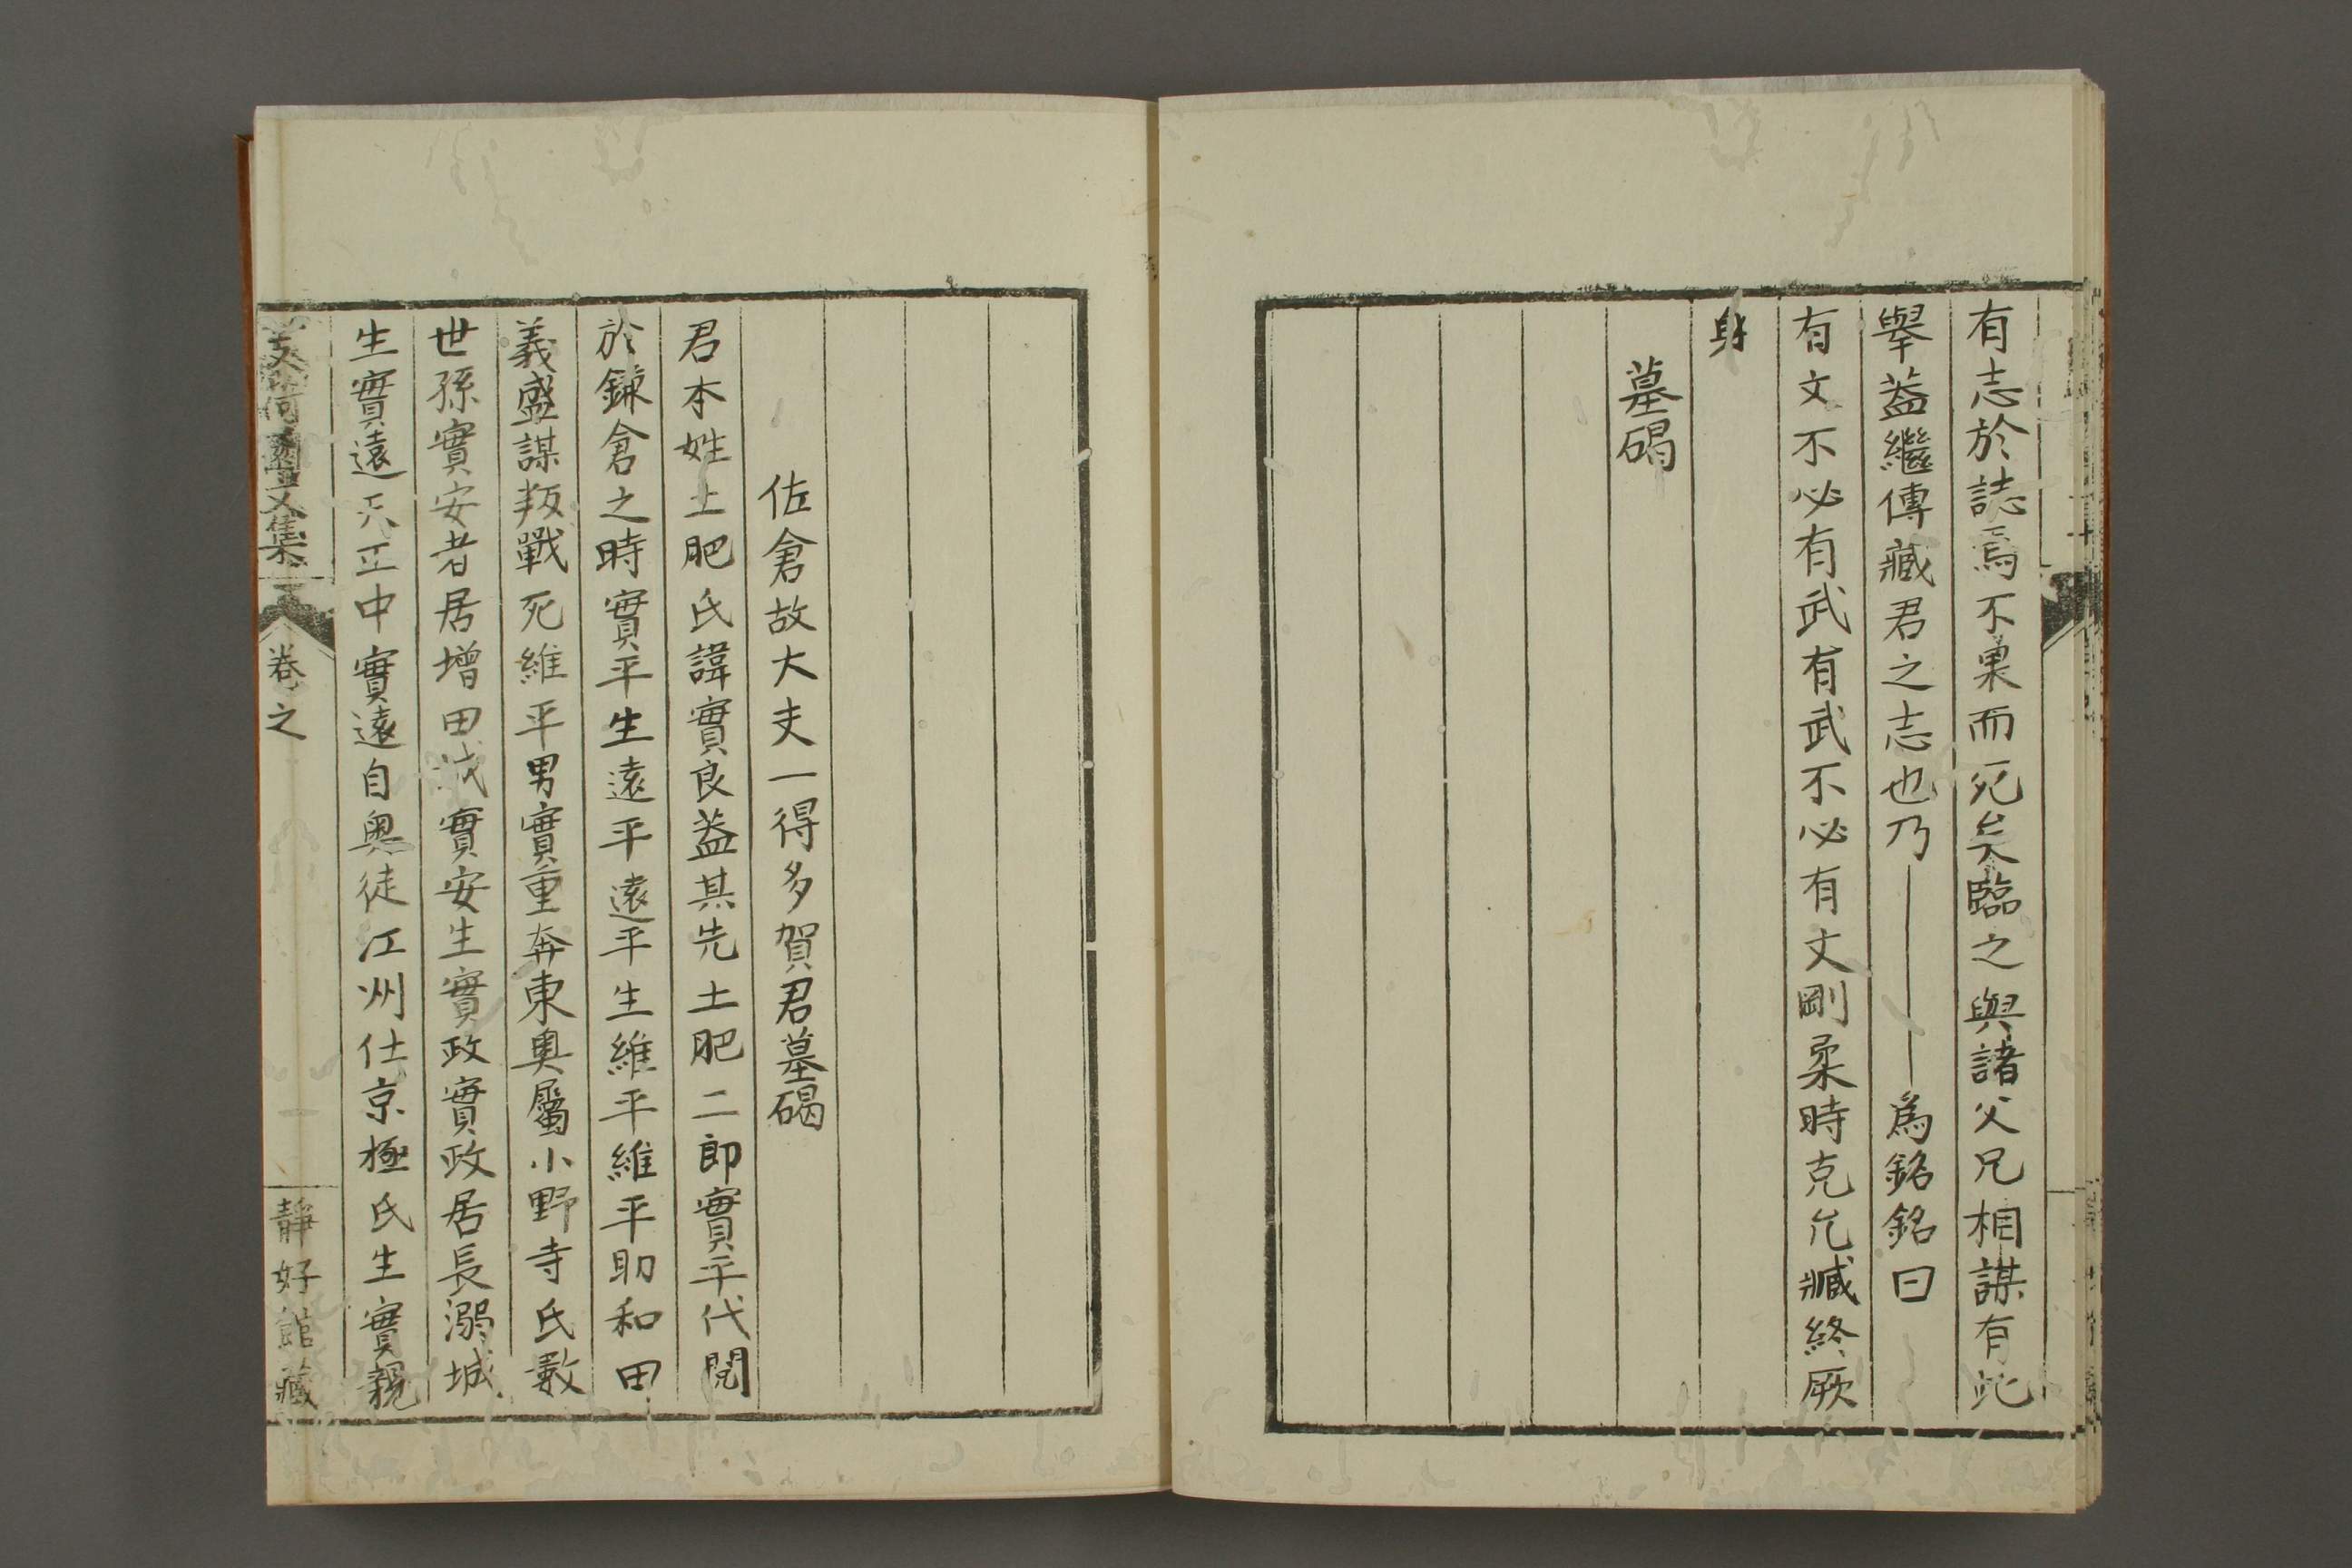 有志於誌焉不果而死矣臨之與諸父兄相謀有此
舉葢繼傳藏君之志也乃――――爲銘銘曰
有文不必有武有武不必有文剛柔時克允臧終厥
身
墓碣
佐倉故大夫一得多賀君墓碣
君本姓土肥氏諱實良葢其先土肥二郎實平代閱
於鎌倉之時實平生遠平遠平生維平維平助和田
義盛謀叛戰死維平男實重奔東奧屬小野寺氏數
世孫實安者居増田城實安生實政實政居長溺城
生實遠天正中實遠自奥徒江州仕京極氏生實親
文集 卷之 靜好館藏